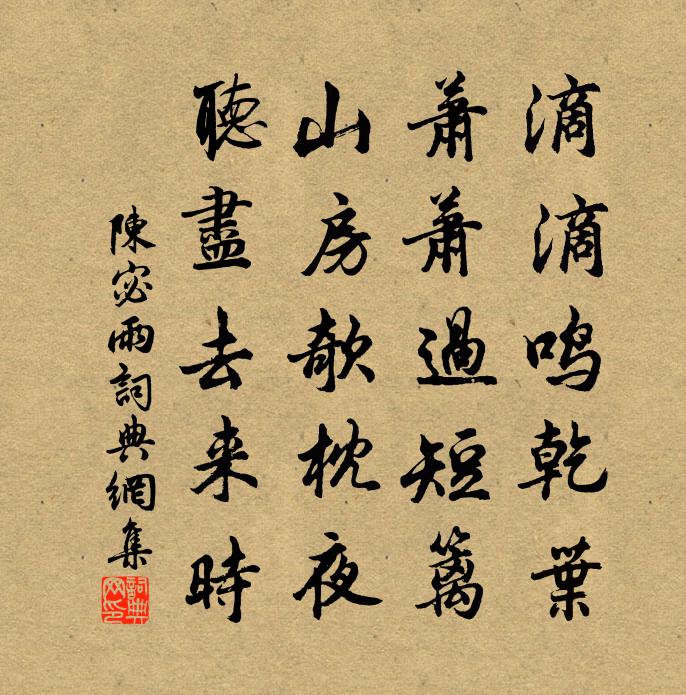 滴滴鸣乾葉
蕭蕭過短籬
山房欹枕夜
聽盡去来時
陳宓雨詞典網集
詞典网印